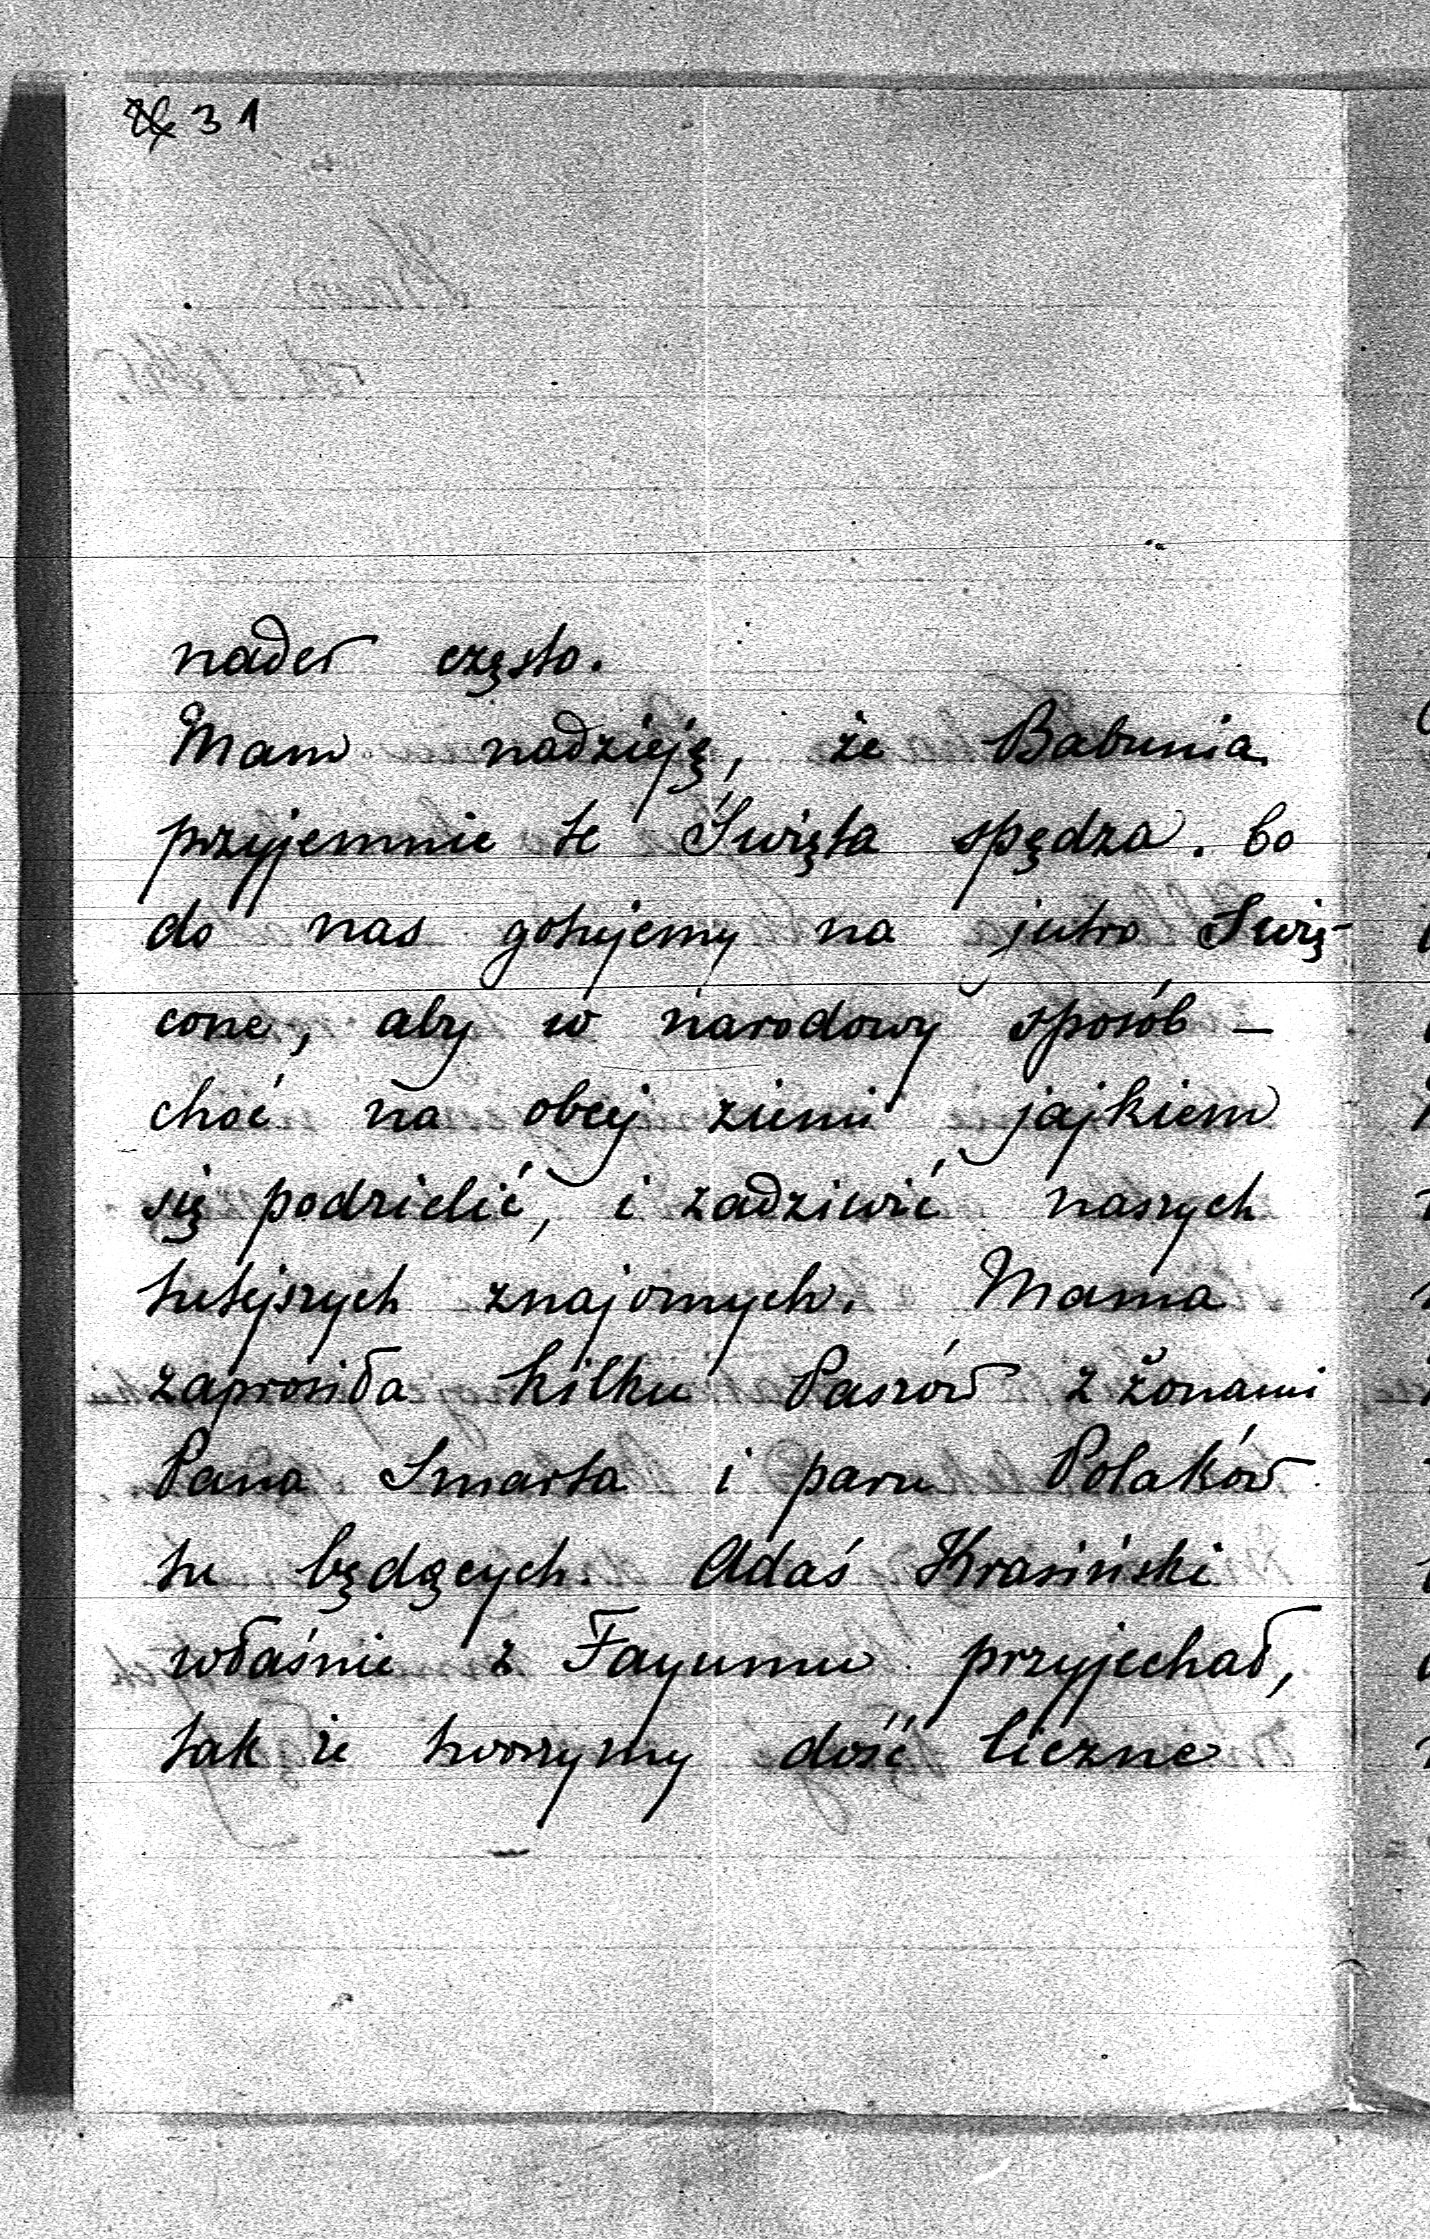 31
nader często.
Mam nadzieję, że Babunia
przyjemnie te Święta spędza. Co
do nas gotujemy na jutro Swię-
cone, aby w narodowy sposób —
choć na obcej ziemi jajkiem
się podzielić, i zadziwić naszych
tutejszych znajomych. Mama
zaprosiła kilku Paszów z żonami
Pana Smarta i paru Polaków
tu będących. Adaś Krasiński
właśnie z Fayumu przyjechał,
tak że tworzymy dość liczne